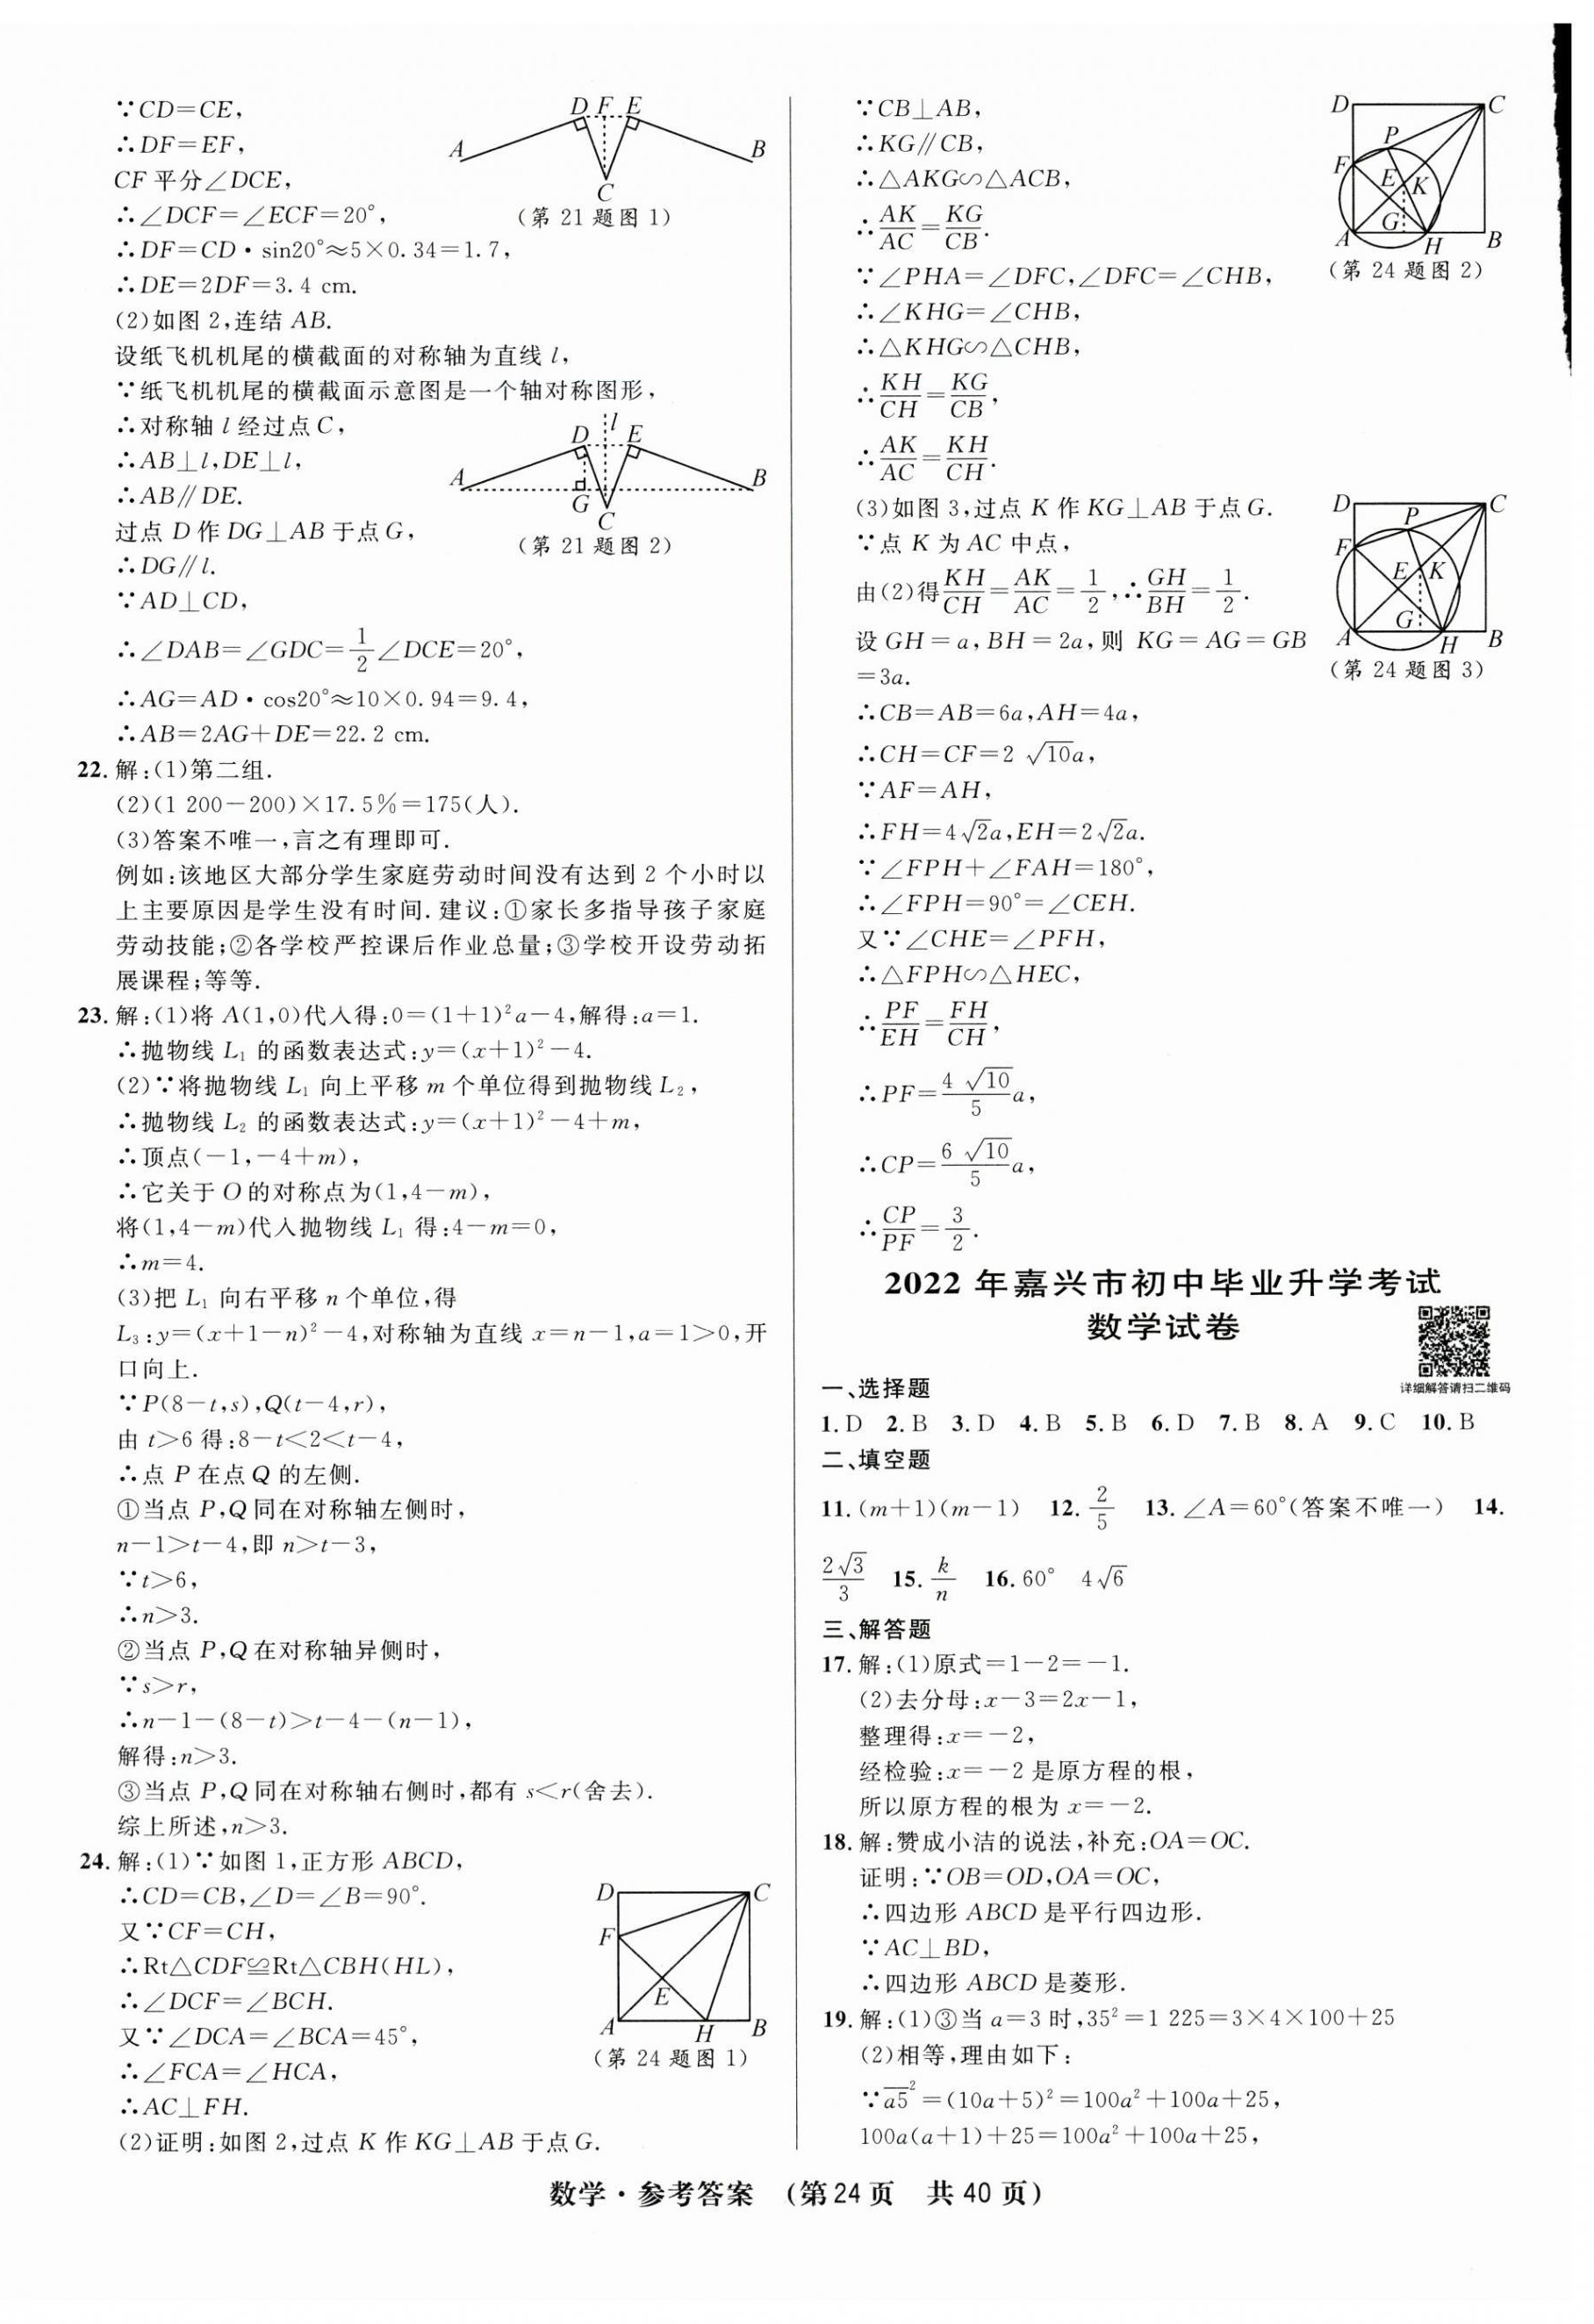 ∵CD=CE,
∴DF=EF,
CF 平分∠DCE,
∴∠DCF=∠ECF=20°,
∴DF=CD·sin20°≈5×0.34=1.7,
∴DE=2DF=3.4 cm.
D F E
A B
C
(第 21 题图 1)
(2)如图 2,连结 AB.
设纸飞机机尾的横截面的对称轴为直线 l,
∵纸飞机机尾的横截面示意图是一个轴对称图形,
∴对称轴 l 经过点 C,
∴AB⊥l,DE⊥l,
∴AB∥DE.
过点 D 作 DG⊥AB 于点 G,
∴DG∥l.
∵AD⊥CD,
D l E
A B
G C
(第 21 题图 2)
∴∠DAB=∠GDC=1/2∠DCE=20°,
∴AG=AD·cos20°≈10×0.94=9.4,
∴AB=2AG+DE=22.2 cm.
22.解:(1)第二组.
(2)(1 200-200)×17.5%=175(人).
(3)答案不唯一,言之有理即可.
例如:该地区大部分学生家庭劳动时间没有达到 2 个小时以
上主要原因是学生没有时间.建议:①家长多指导孩子家庭
劳动技能;②各学校严控课后作业总量;③学校开设劳动拓
展课程;等等.
23.解:(1)将 A(1,0)代入得:0=(1+1)²a-4,解得:a=1.
∴抛物线 L₁ 的函数表达式:y=(x+1)²-4.
(2)∵将抛物线 L₁ 向上平移 m 个单位得到抛物线 L₂,
∴抛物线 L₂ 的函数表达式:y=(x+1)²-4+m,
∴顶点(-1,-4+m),
∴它关于 O 的对称点为(1,4-m),
将(1,4-m)代入抛物线 L₁ 得:4-m=0,
∴m=4.
(3)把 L₁ 向右平移 n 个单位,得
L₃:y=(x+1-n)²-4,对称轴为直线 x=n-1,a=1>0,开
口向上.
∵P(8-t,s),Q(t-4,r),
由 t>6 得:8-t<2<t-4,
∴点 P 在点 Q 的左侧.
①当点 P,Q 同在对称轴左侧时,
n-1>t-4,即 n>t-3,
∵t>6,
∴n>3.
②当点 P,Q 在对称轴异侧时,
∵s>r,
∴n-1-(8-t)>t-4-(n-1),
解得:n>3.
③当点 P,Q 同在对称轴右侧时,都有 s<r(舍去).
综上所述,n>3.
24.解:(1)∵如图 1,正方形 ABCD,
∴CD=CB,∠D=∠B=90°.
又∵CF=CH,
∴Rt△CDF≌Rt△CBH(HL),
∴∠DCF=∠BCH.
又∵∠DCA=∠BCA=45°,
∴∠FCA=∠HCA,
∴AC⊥FH.
D C
F
E
A H B
(第 24 题图 1)
(2)证明:如图 2,过点 K 作 KG⊥AB 于点 G.
∵CB⊥AB,
∴KG∥CB,
∴△AKG∽△ACB,
∴AK/AC=KG/CB.
∵∠PHA=∠DFC,∠DFC=∠CHB,
∴∠KHG=∠CHB,
∴△KHG∽△CHB,
∴KH/CH=KG/CB,
∴AK/AC=KH/CH.
D C
P
F
E K
G
A H B
(第 24 题图 2)
(3)如图 3,过点 K 作 KG⊥AB 于点 G.
∵点 K 为 AC 中点,
由(2)得KH/CH=AK/AC=1/2,∴GH/BH=1/2.
设 GH=a,BH=2a,则 KG=AG=GB
=3a.
∴CB=AB=6a,AH=4a,
∴CH=CF=2√10a,
∵AF=AH,
∴FH=4√2a,EH=2√2a.
∵∠FPH+∠FAH=180°,
∴∠FPH=90°=∠CEH.
又∵∠CHE=∠PFH,
∴△FPH∽△HEC,
∴PF/EH=FH/CH,
∴PF=4√10/5 a,
∴CP=6√10/5 a,
∴CP/PF=3/2.
D C
P
F
E K
G
A H B
(第 24 题图 3)
2022 年嘉兴市初中毕业升学考试
数学试卷
详细解答请扫二维码
一、选择题
1.D 2.B 3.D 4.B 5.B 6.D 7.B 8.A 9.C 10.B
二、填空题
11.(m+1)(m-1) 12.2/5 13.∠A=60°(答案不唯一) 14.
2√3/3 15.k/n 16.60° 4√6
三、解答题
17.解:(1)原式=1-2=-1.
(2)去分母:x-3=2x-1,
整理得:x=-2,
经检验:x=-2 是原方程的根,
所以原方程的根为 x=-2.
18.解:赞成小洁的说法,补充:OA=OC.
证明:∵OB=OD,OA=OC,
∴四边形 ABCD 是平行四边形.
∵AC⊥BD,
∴四边形 ABCD 是菱形.
19.解:(1)③当 a=3 时,35²=1 225=3×4×100+25
(2)相等,理由如下:
∵a̅5̅²=(10a+5)²=100a²+100a+25,
100a(a+1)+25=100a²+100a+25,
数学·参考答案 (第24页 共40页)